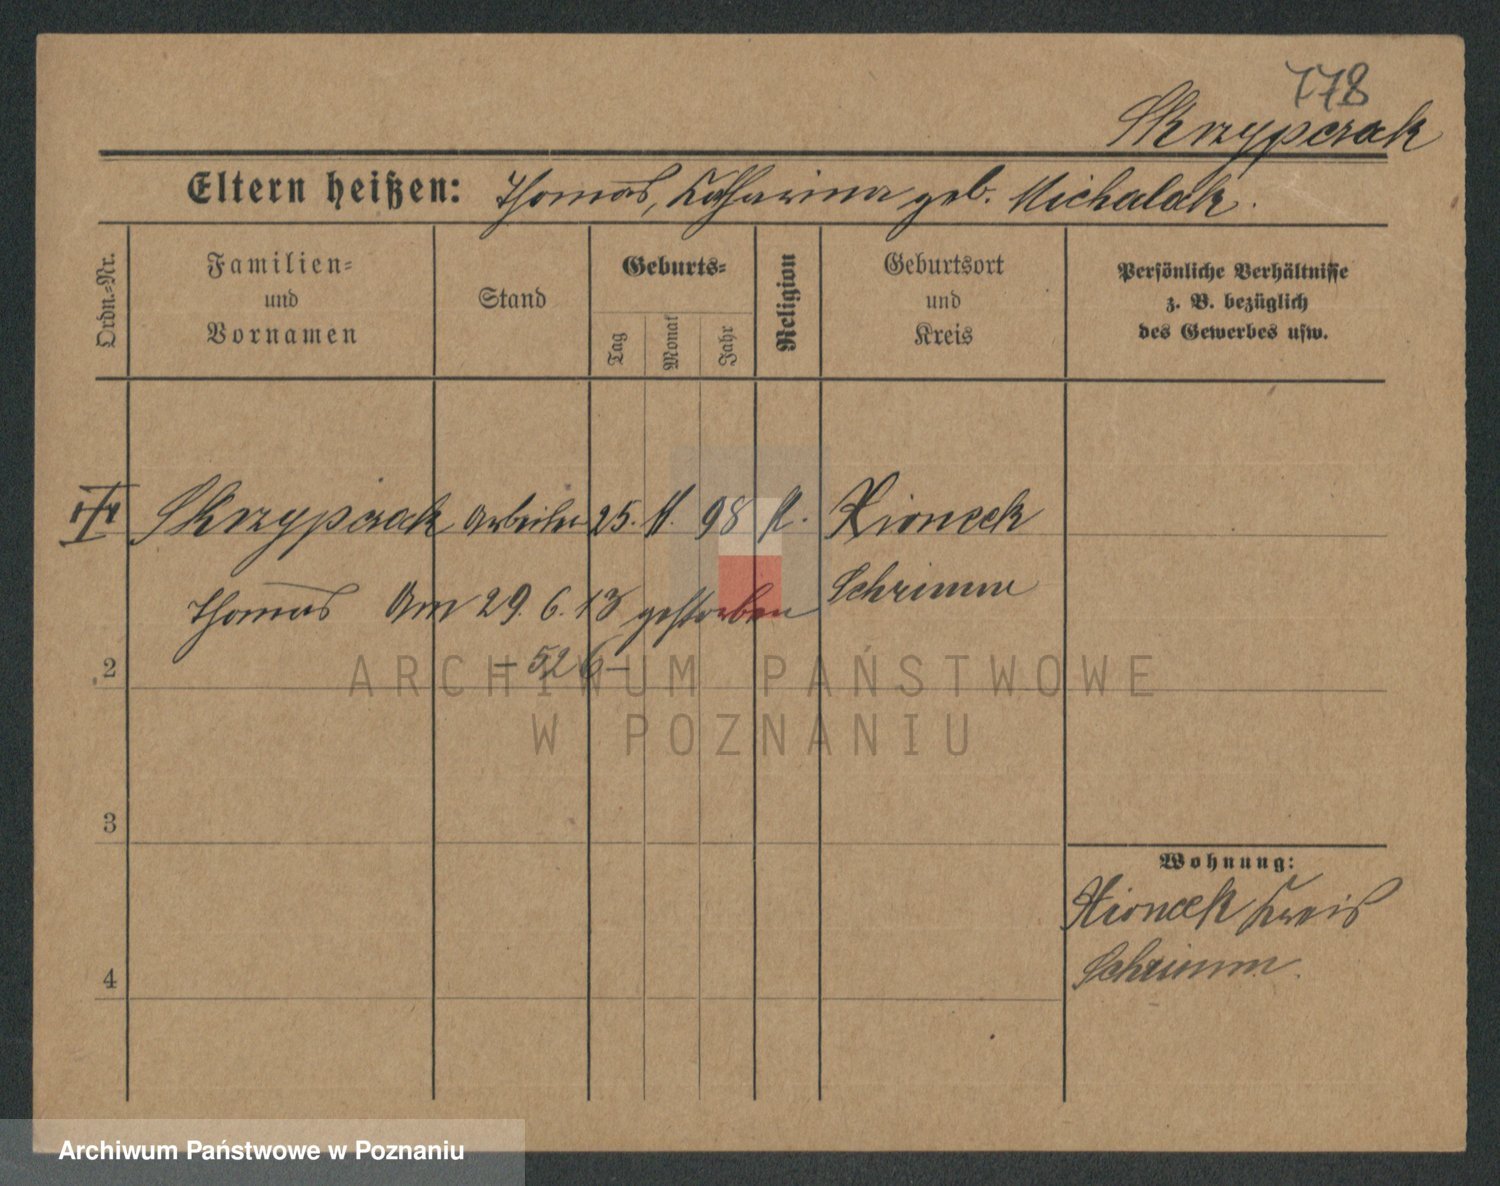 778
Skrzypczak
Eltern heißen: Thomas, Katharina geb. Michalak.
Ordn.-Nr.
Familien-
und
Vornamen
Stand
Geburts-
Tag
Monat
Jahr
Religion
Geburtsort
und
Kreis
Persönliche Verhältnisse
z. B. bezüglich
des Gewerbes usw.
Skrzypczak Arbeiter 25. 11. 98 K. Xioncek
Schrimm
Thomas Am 29. 6. 13 gestorben
- 526 -
2
3
4
Wohnung:
Xioncek Kreis
Schrimm.
ARCHIWUM PAŃSTWOWE
W POZNANIU
Archiwum Państwowe w Poznaniu